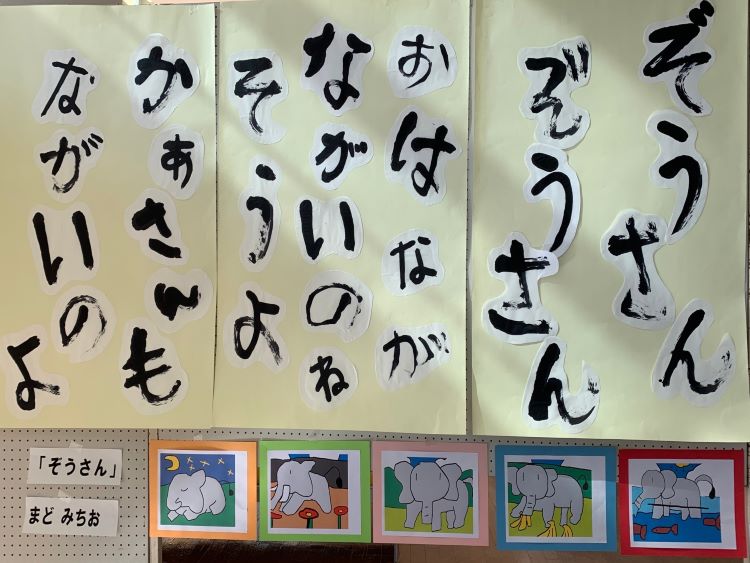 ぞうさん
ぞうさん
おはなが
ながいのね
そうよ
かあさんも
ながいのよ
「ぞうさん」
まど みちお